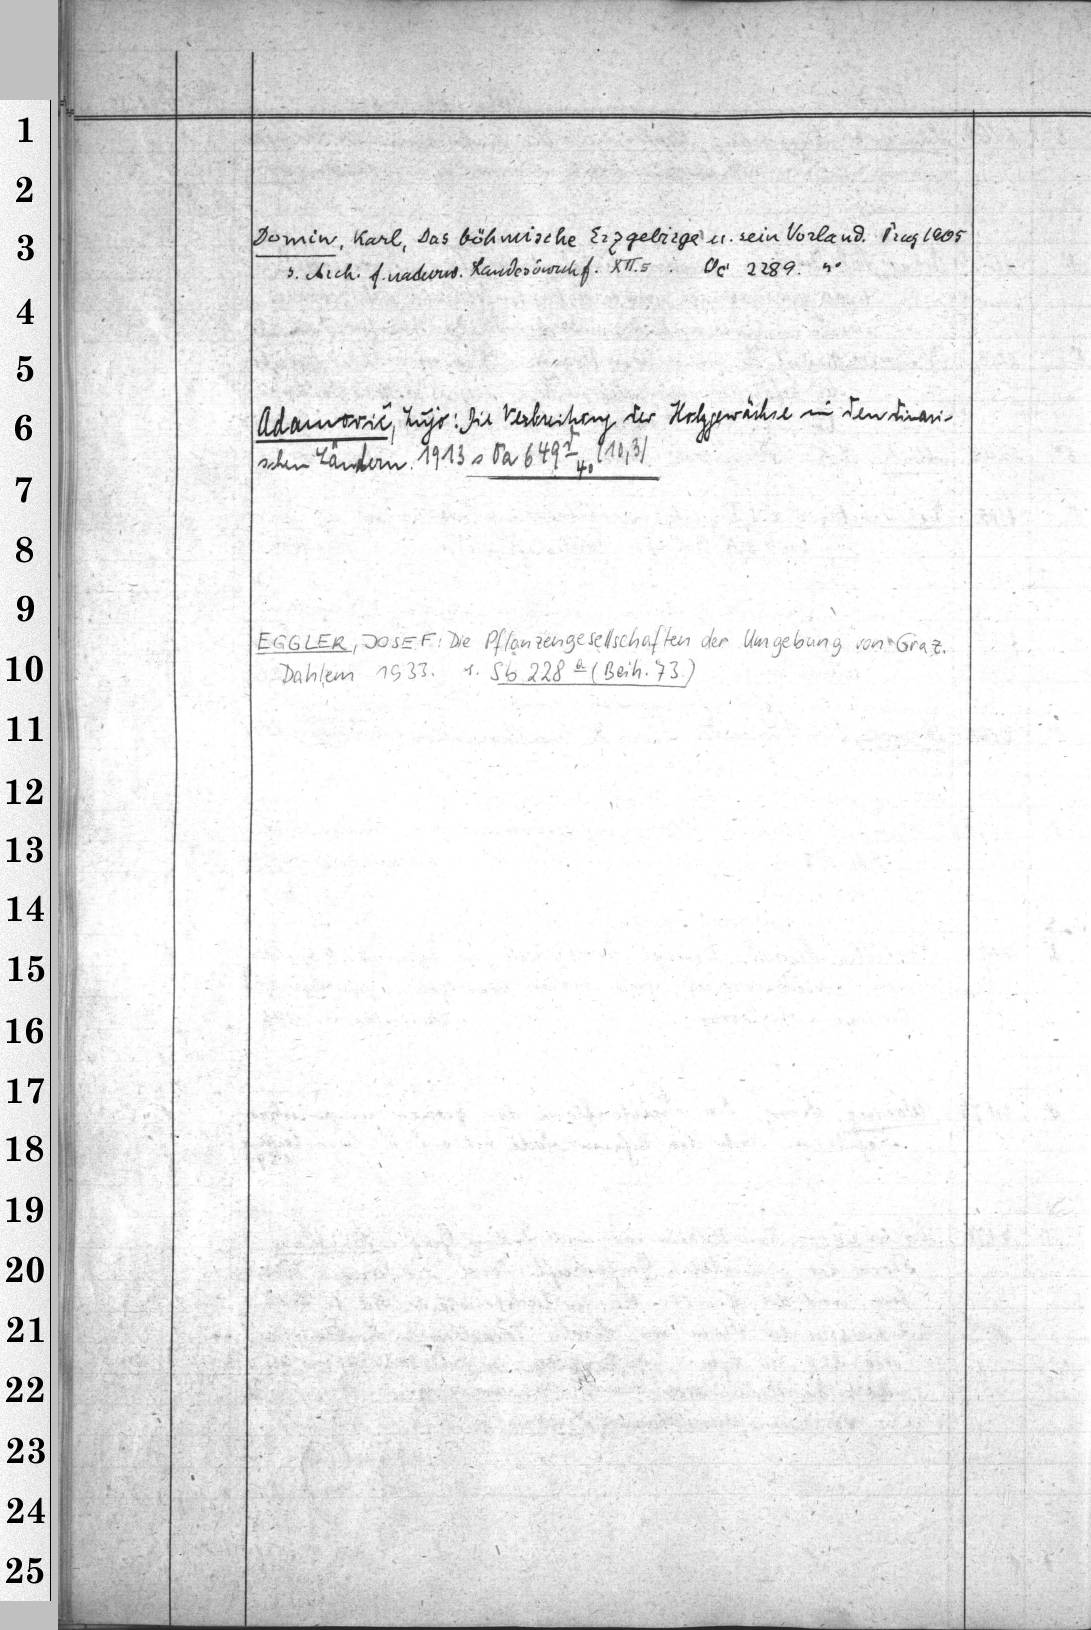 1
2
3
Domin, Karl, Das böhmische Erzgebirge u. sein Vorland. Prag 1905
s. Arch. f. naturw. Landesdurchf. XII.5. Oc 2289. 4°
4
5
6
Adamović, Lujo: Die Verbreitung der Holzgewächse in den dinari-
schen Ländern. 1913 s Oa 649 4° (10,3)
7
8
9
EGGLER, JOSEF: Die Pflanzengesellschaften der Umgebung von Graz.
10
Dahlem 1933. s. Sb 228 a (Beih. 73)
11
12
13
14
15
16
17
18
19
20
21
22
23
24
25